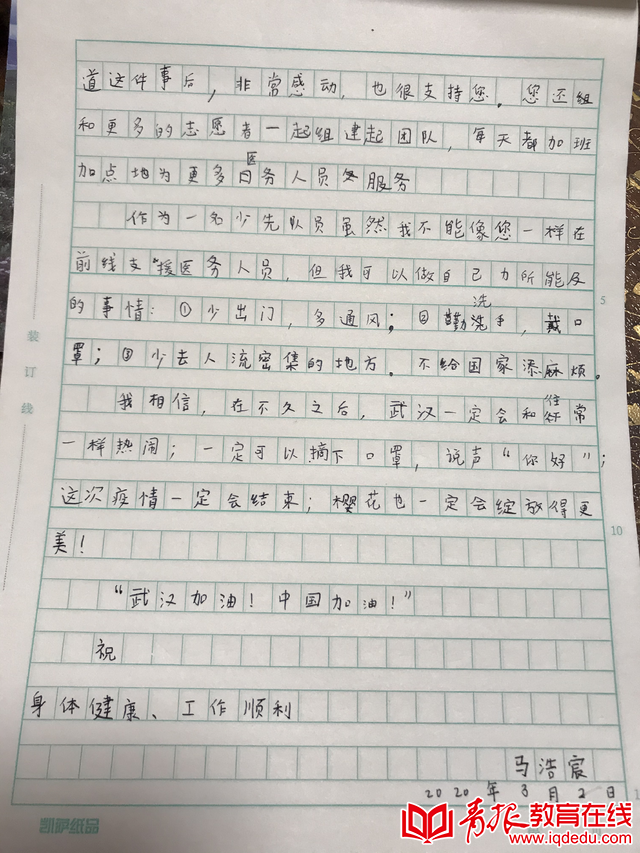 道这件事后，非常感动，也很支持您。您还组
和更多的志愿者一起组建起团队，每天都加班
加点地为更多医务人员服务
作为一名少先队员虽然我不能像您一样在
前线支援医务人员，但我可以做自己力所能及
的事情：①少出门，多通风；②勤洗手，戴口
罩；③少去人流密集的地方。不给国家添麻烦。
我相信，在不久之后，武汉一定会和往常
一样热闹；一定可以摘下口罩，说声“你好”；
这次疫情一定会结束；樱花也一定会绽放得更
美！
“武汉加油！中国加油！”
祝
身体健康、工作顺利
马浩宸
2020年3月2日
装订线
5
10
凯萨纸品
青报教育在线
www.iqdedu.com